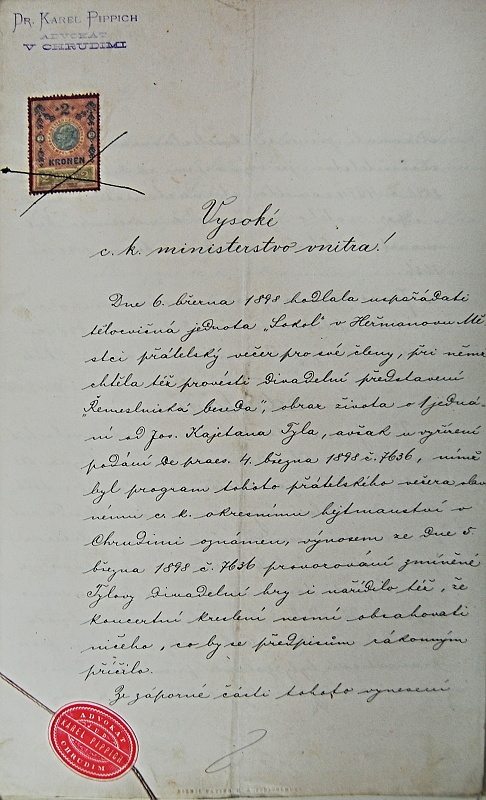 Dr. Karel Pippich
ADVOKÁT
V CHRUDIMI
2
KRONEN
Vysoké
c. k. ministerstvo vnitra!
Dne 6. března 1898 hodlala uspořádati
tělocvičná jednota „Sokol" v Heřmanovu Mě-
stci přátelský večer pro své členy, při němž
chtěla též provésti divadelní představení
„Řemeslnická beseda", obraz života o 1 jedná-
ní od Jos. Kajetana Tyla, avšak u vyřízení
podání de praes. 4. března 1898 č. 7636, nímž
byl program tohoto přátelského večera slav-
nému c. k. okresnímu hejtmanství v
Chrudimi oznámen, výnosem ze dne 5.
března 1898 č. 7636 provozování zmíněné
Tylovy divadelní hry i nařídilo též, že
koncertní kreslení nesmí obsahovati
ničeho, co by se předpisům zákonným
příčilo.
Ze záporné části tohoto vynesení
ADVOKÁT
JUD.
KAREL PIPPICH
CHRUDIM